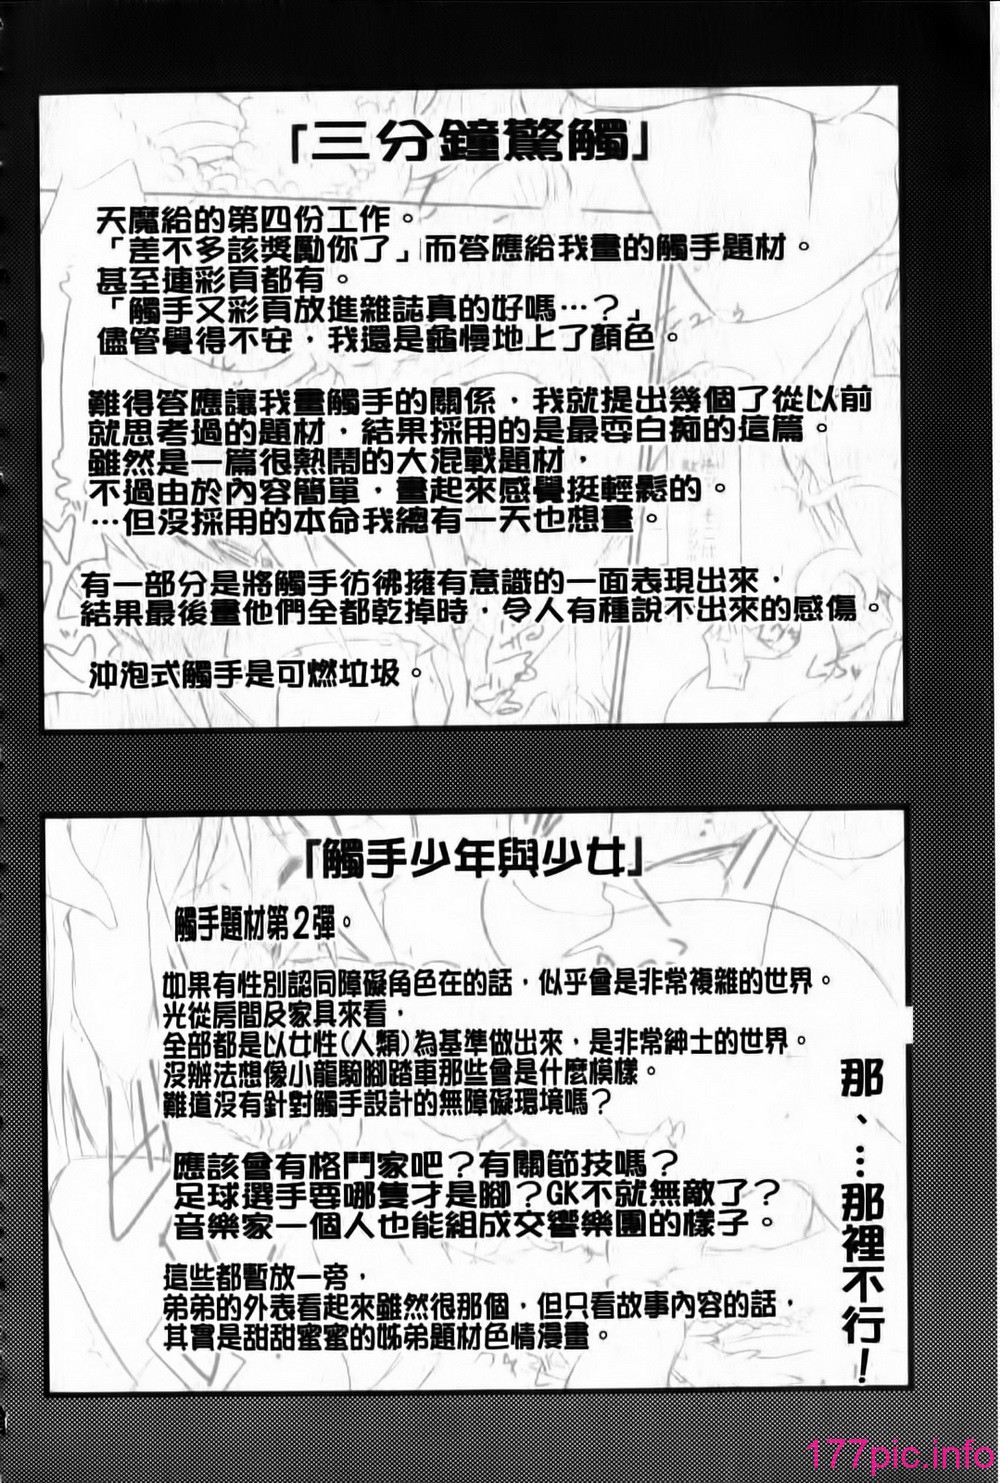 「三分鐘驚觸」
天魔給的第四份工作。
「差不多該獎勵你了」而答應給我畫的觸手題材。
甚至連彩頁都有。
「觸手又彩頁放進雜誌真的好嗎…？」
儘管覺得不安，我還是龜慢地上了顏色。
難得答應讓我畫觸手的關係，我就提出幾個了從以前
就思考過的題材，結果採用的是最耍白痴的這篇。
雖然是一篇很熱鬧的大混戰題材，
不過由於內容簡單，畫起來感覺挺輕鬆的。
…但沒採用的本命我總有一天也想畫。
有一部分是將觸手彷彿擁有意識的一面表現出來，
結果最後畫他們全都乾掉時，令人有種說不出來的感傷。
沖泡式觸手是可燃垃圾。
「觸手少年與少女」
觸手題材第2彈。
如果有性別認同障礙角色在的話，似乎會是非常複雜的世界。
光從房間及家具來看，
全部都是以女性(人類)為基準做出來，是非常紳士的世界。
沒辦法想像小龍騎腳踏車那些會是什麼模樣。
難道沒有針對觸手設計的無障礙環境嗎？
應該會有格鬥家吧？有關節技嗎？
足球選手要哪隻才是腳？GK不就無敵了？
音樂家一個人也能組成交響樂團的樣子。
這些都暫放一旁，
弟弟的外表看起來雖然很那個，但只看故事內容的話，
其實是甜甜蜜蜜的姊弟題材色情漫畫。
那、…那裡不行！
177pic.info